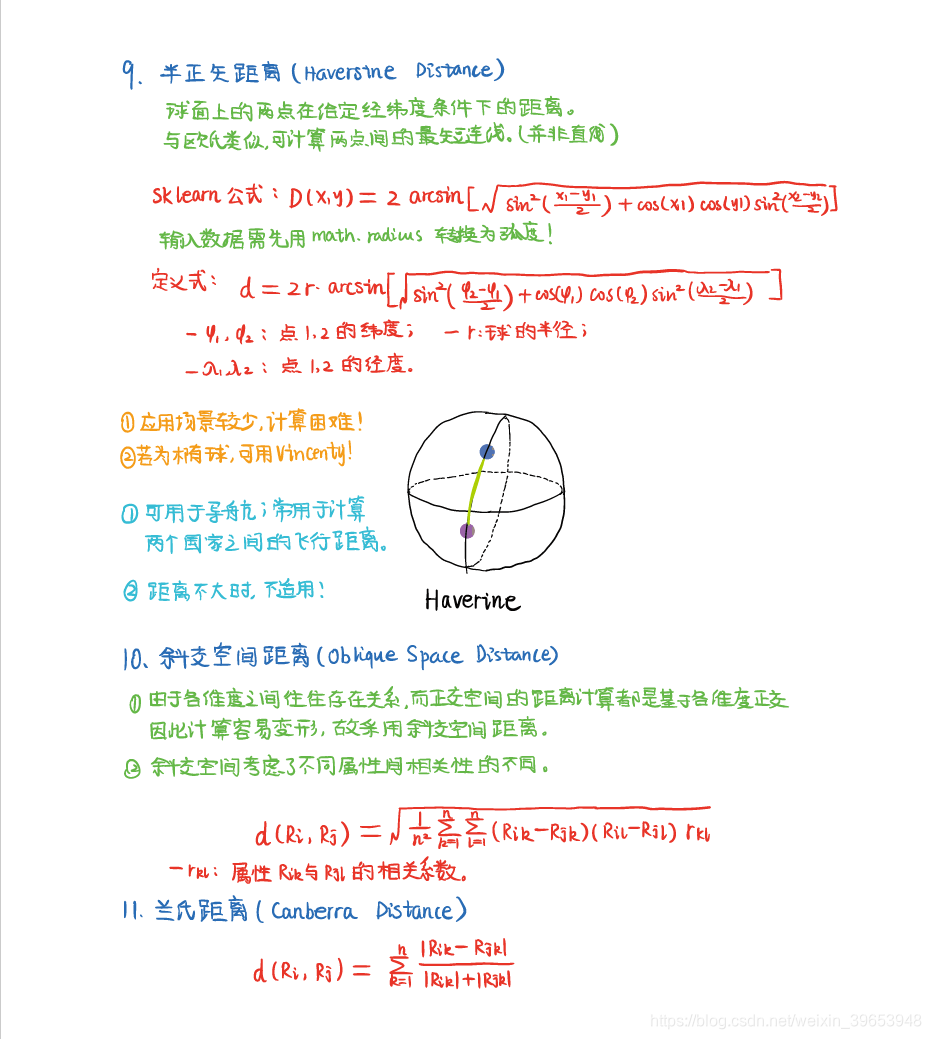 9. 半正矢距离(Haversine Distance)
球面上的两点在给定经纬度条件下的距离。
与欧氏类似,可计算两点间的最短连线。(并非直线)
Sklearn 公式: D(x,y) = 2 arcsin[√(sin²((x1-y1)/2) + cos(x1) cos(y1) sin²((x2-y2)/2))]
输入数据需先用 math.radius 转换为弧度!
定义式: d = 2r· arcsin[√(sin²((φ₂-φ₁)/2) + cos(φ₁) cos(φ₂) sin²((λ₂-λ₁)/2))]
- φ₁, φ₂: 点 1,2 的纬度; - r:球的半径;
- λ₁,λ₂: 点 1,2 的经度。
①应用场景较少,计算困难!
②若为椭球,可用Vincenty!
① 可用于导航;常用于计算
两个国家之间的飞行距离。
② 距离不大时,不适用!
Haverine
10、斜交空间距离(Oblique Space Distance)
① 由于各维度之间往往存在关系,而正交空间的距离计算都是基于各维度正交
因此计算容易变形,故采用斜交空间距离。
② 斜交空间考虑了不同属性间相关性的不同。
d(Ri, Rj) = √(1/n² ∑_{k=1}^{n} ∑_{l=1}^{n} (Rik-Rjk)(Ril-Rjl) rkl)
- rkl: 属性 Rik与 Rjl 的相关系数。
11. 兰氏距离(Canberra Distance)
d(Ri, Rj) = ∑_{k=1}^{n} |Rik-Rjk| / (|Rik|+|Rjk|)
https://blog.csdn.net/weixin_39653948